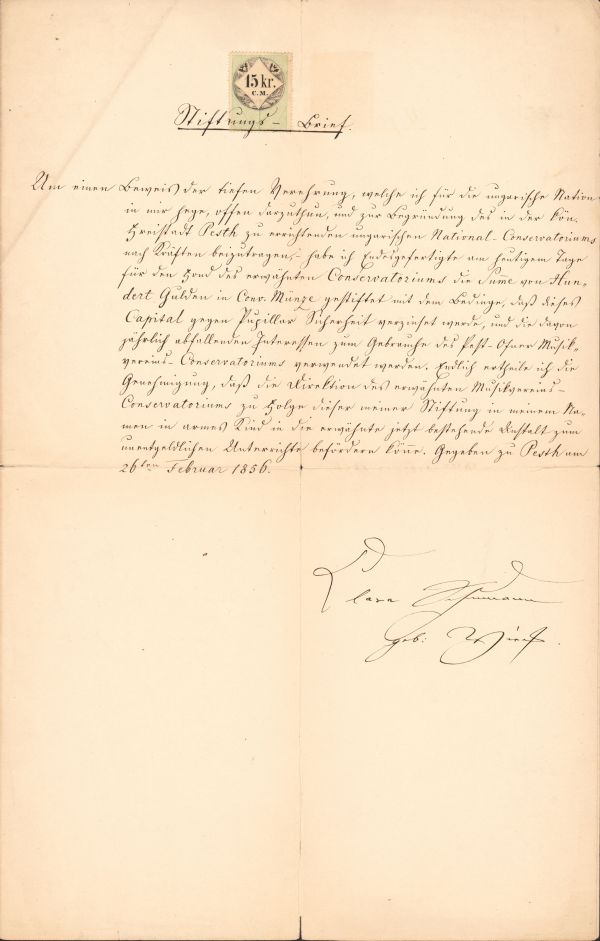 15 kr.
C.M.
Stiftungs- Brief.
Um einen Beweis der tiefen Verehrung, welche ich für die ungarische Nation
in mir hege, offen darzuthun, und zur Begründung des in der kön.
Freistadt Pesth zu errichtenden ungarischen National-Conservatoriums
nach Kräften beizutragen,- habe ich Endesgefertigte am heutigen Tage
für den Fond des erwähnten Conservatoriums die Summe von Hun-
dert Gulden in Conv. Münze gestiftet mit dem Bedinge, daß dieses
Capital gegen Pupillar Sicherheit verzinset werde, und die davon
jährlich abfallenden Interessen zum Gebrauche des Pest-Ofner Musik-
vereins-Conservatoriums verwendet werden. Endlich ertheile ich die
Genehmigung, daß die Direktion des erwähnten Musikvereins-
Conservatoriums zu Folge dieser meiner Stiftung in meinem Na-
men in armes Kind in die erwähnte jetzt bestehende Anstalt zum
unentgeldlichen Unterrichte befördern könne. Gegeben zu Pesth am
26ten Februar 1856.
Clara Schumann
geb: Wieck.